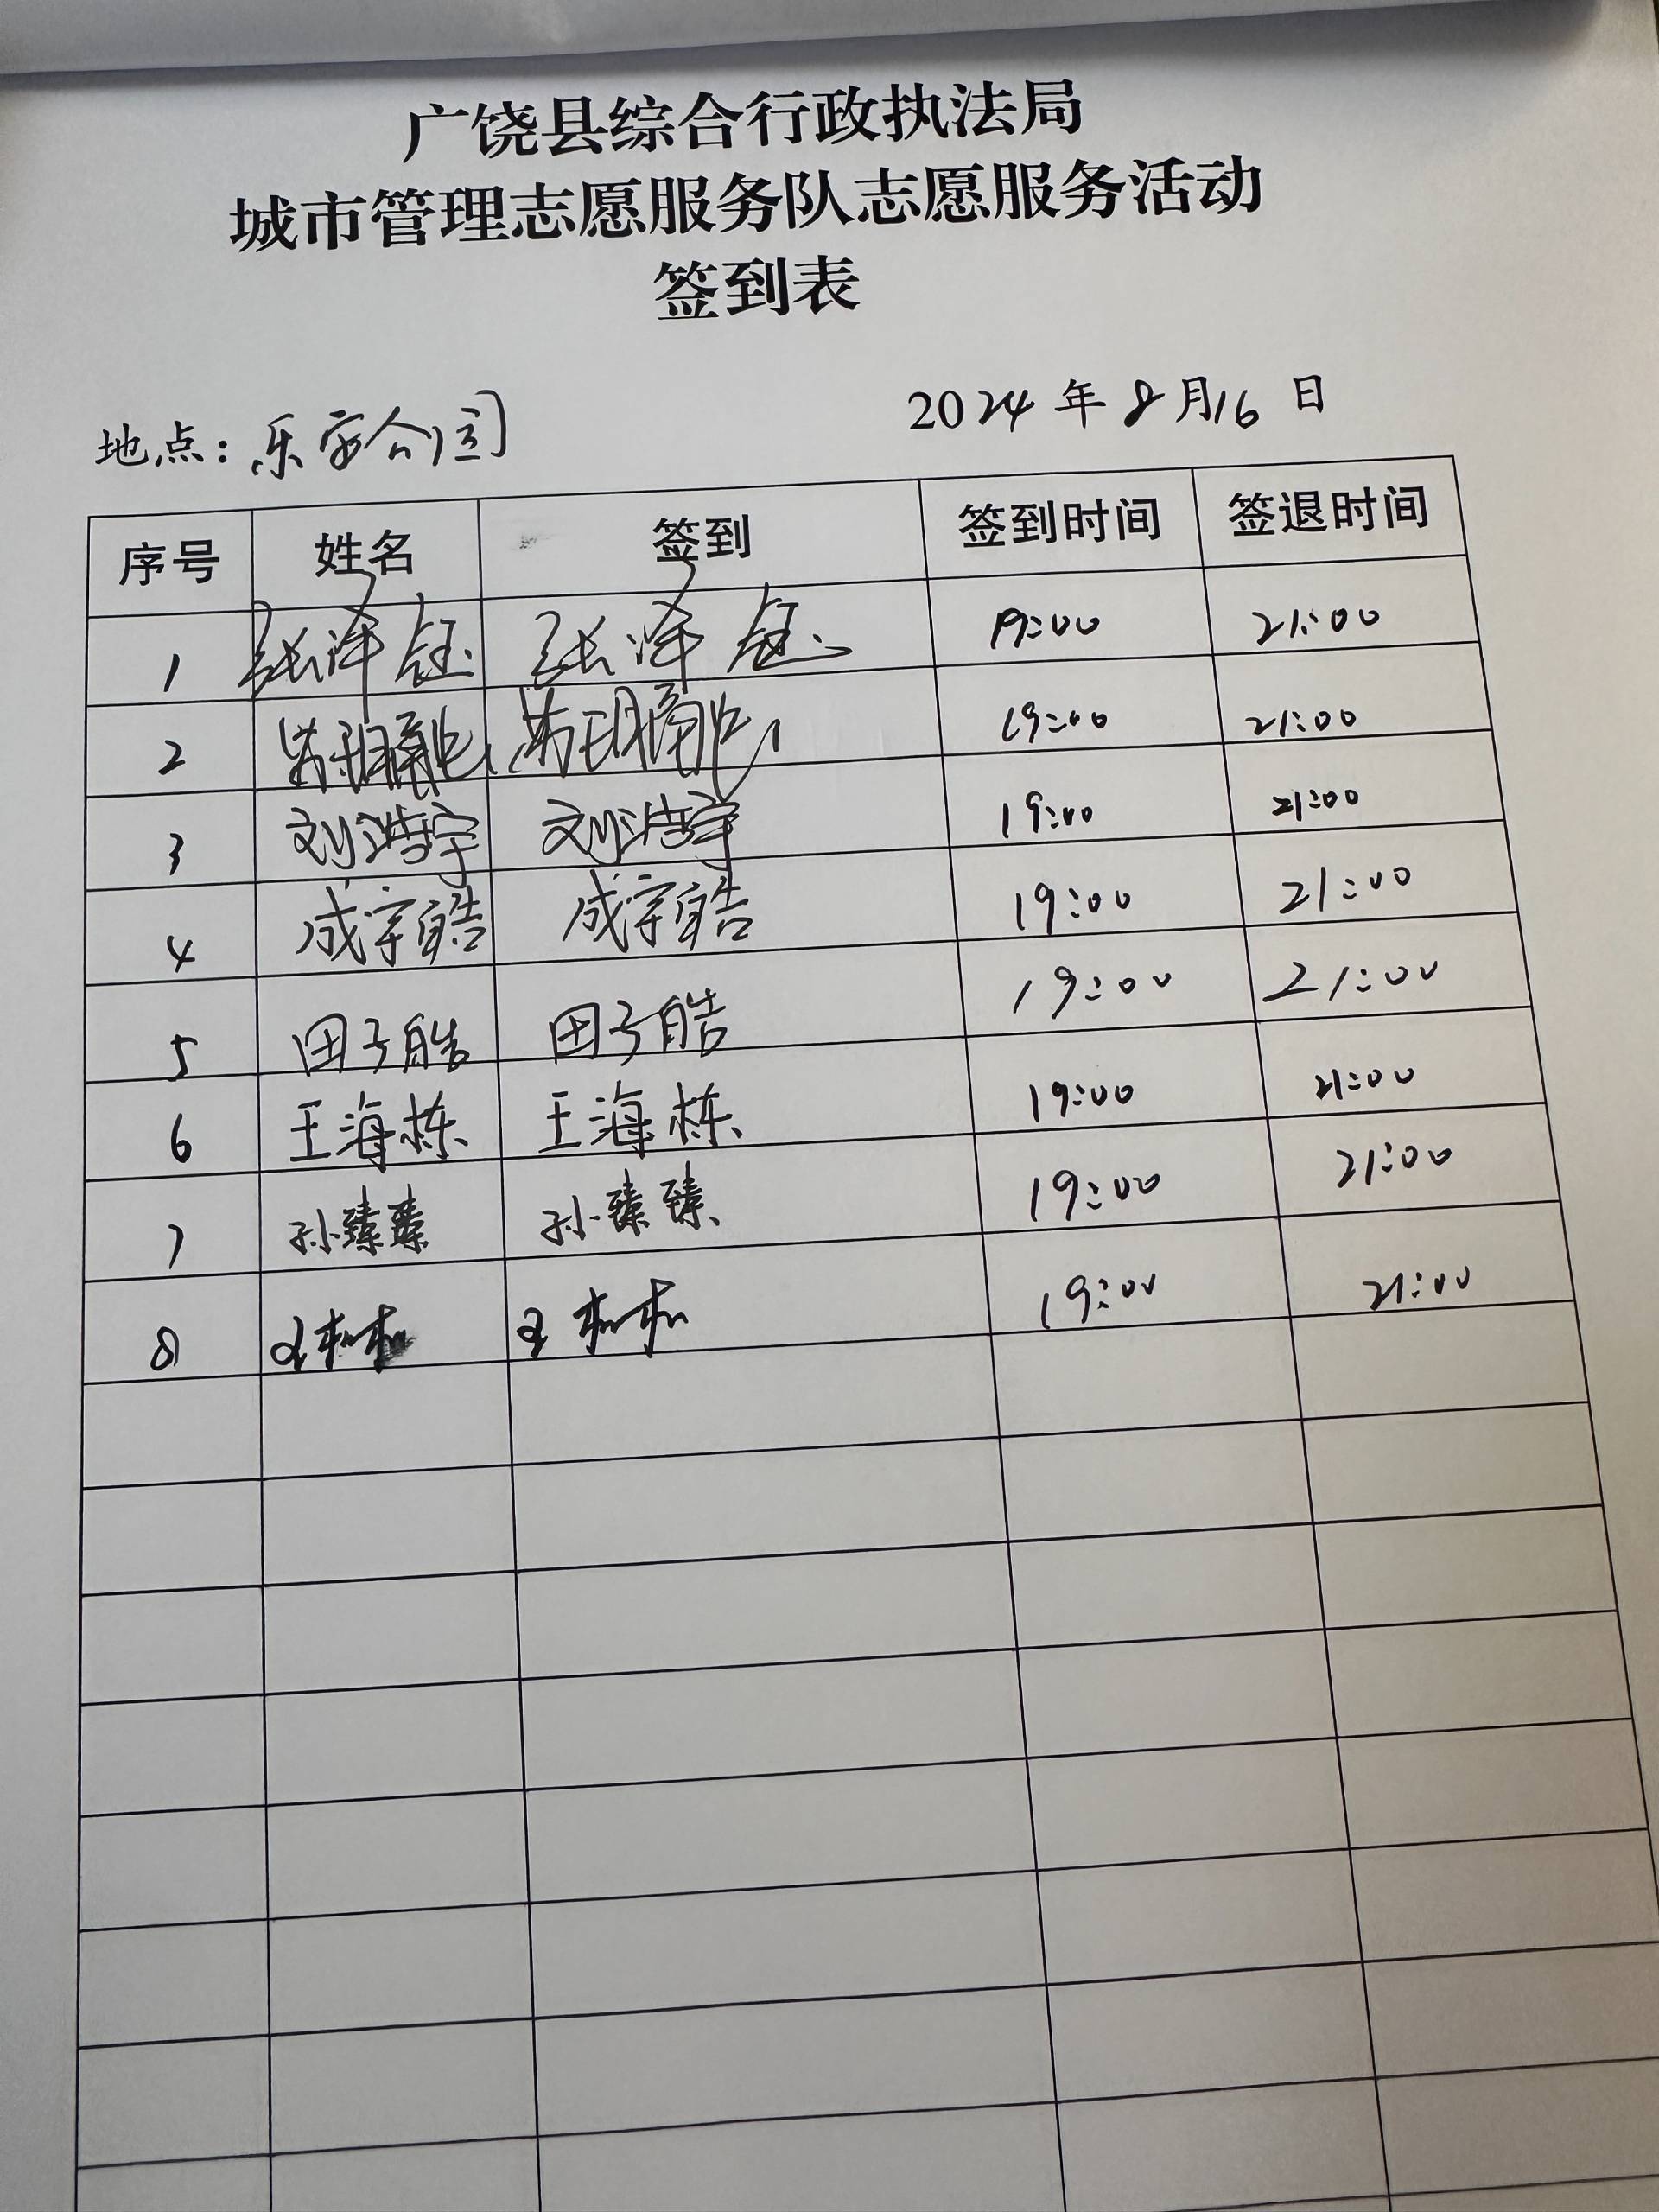 广饶县综合行政执法局
城市管理志愿服务队志愿服务活动
签到表
地点：乐安公园 2024年8月16日
序号 姓名 签到 签到时间 签退时间
1 张泽钰 张泽钰 19:00 21:00
2 19:00 21:00
3 刘浩宇 刘浩宇 19:00 21:00
4 成宇皓 成宇皓 19:00 21:00
5 田子皓 田子皓 19:00 21:00
6 王海栋 王海栋 19:00 21:00
7 孙臻臻 孙臻臻 19:00 21:00
8 19:00 21:00